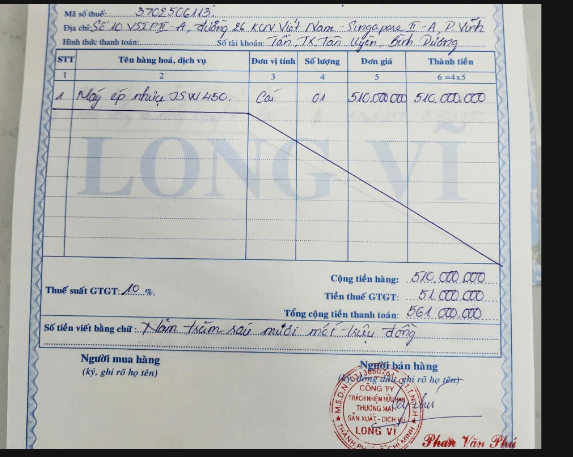 Mã số thuế: 3702506113.
Địa chỉ: Số 10 VSIP II-A, đường 26 KCN Việt Nam - Singapore II - A, P. Vĩnh
Hình thức thanh toán: Số tài khoản: Tân, TX. Tân Uyên, Bình Dương
STT Tên hàng hoá, dịch vụ Đơn vị tính Số lượng Đơn giá Thành tiền
1 2 3 4 5 6 =4x5
1 Máy ép nhựa JSW 450. Cái 01 510.000.000 510.000.000
LONG VĨ
Cộng tiền hàng: 510.000.000
Thuế suất GTGT: 10 %. Tiền thuế GTGT: 51.000.000
Tổng cộng tiền thanh toán: 561.000.000
Số tiền viết bằng chữ: Năm trăm sáu mươi mốt triệu đồng
Người mua hàng Người bán hàng
(ký, ghi rõ họ tên) (ký, đóng dấu, ghi rõ họ tên)
CÔNG TY
TRÁCH NHIỆM HỮU HẠN
THƯƠNG MẠI
SẢN XUẤT - DỊCH VỤ
LONG VĨ
Phan Văn Phú